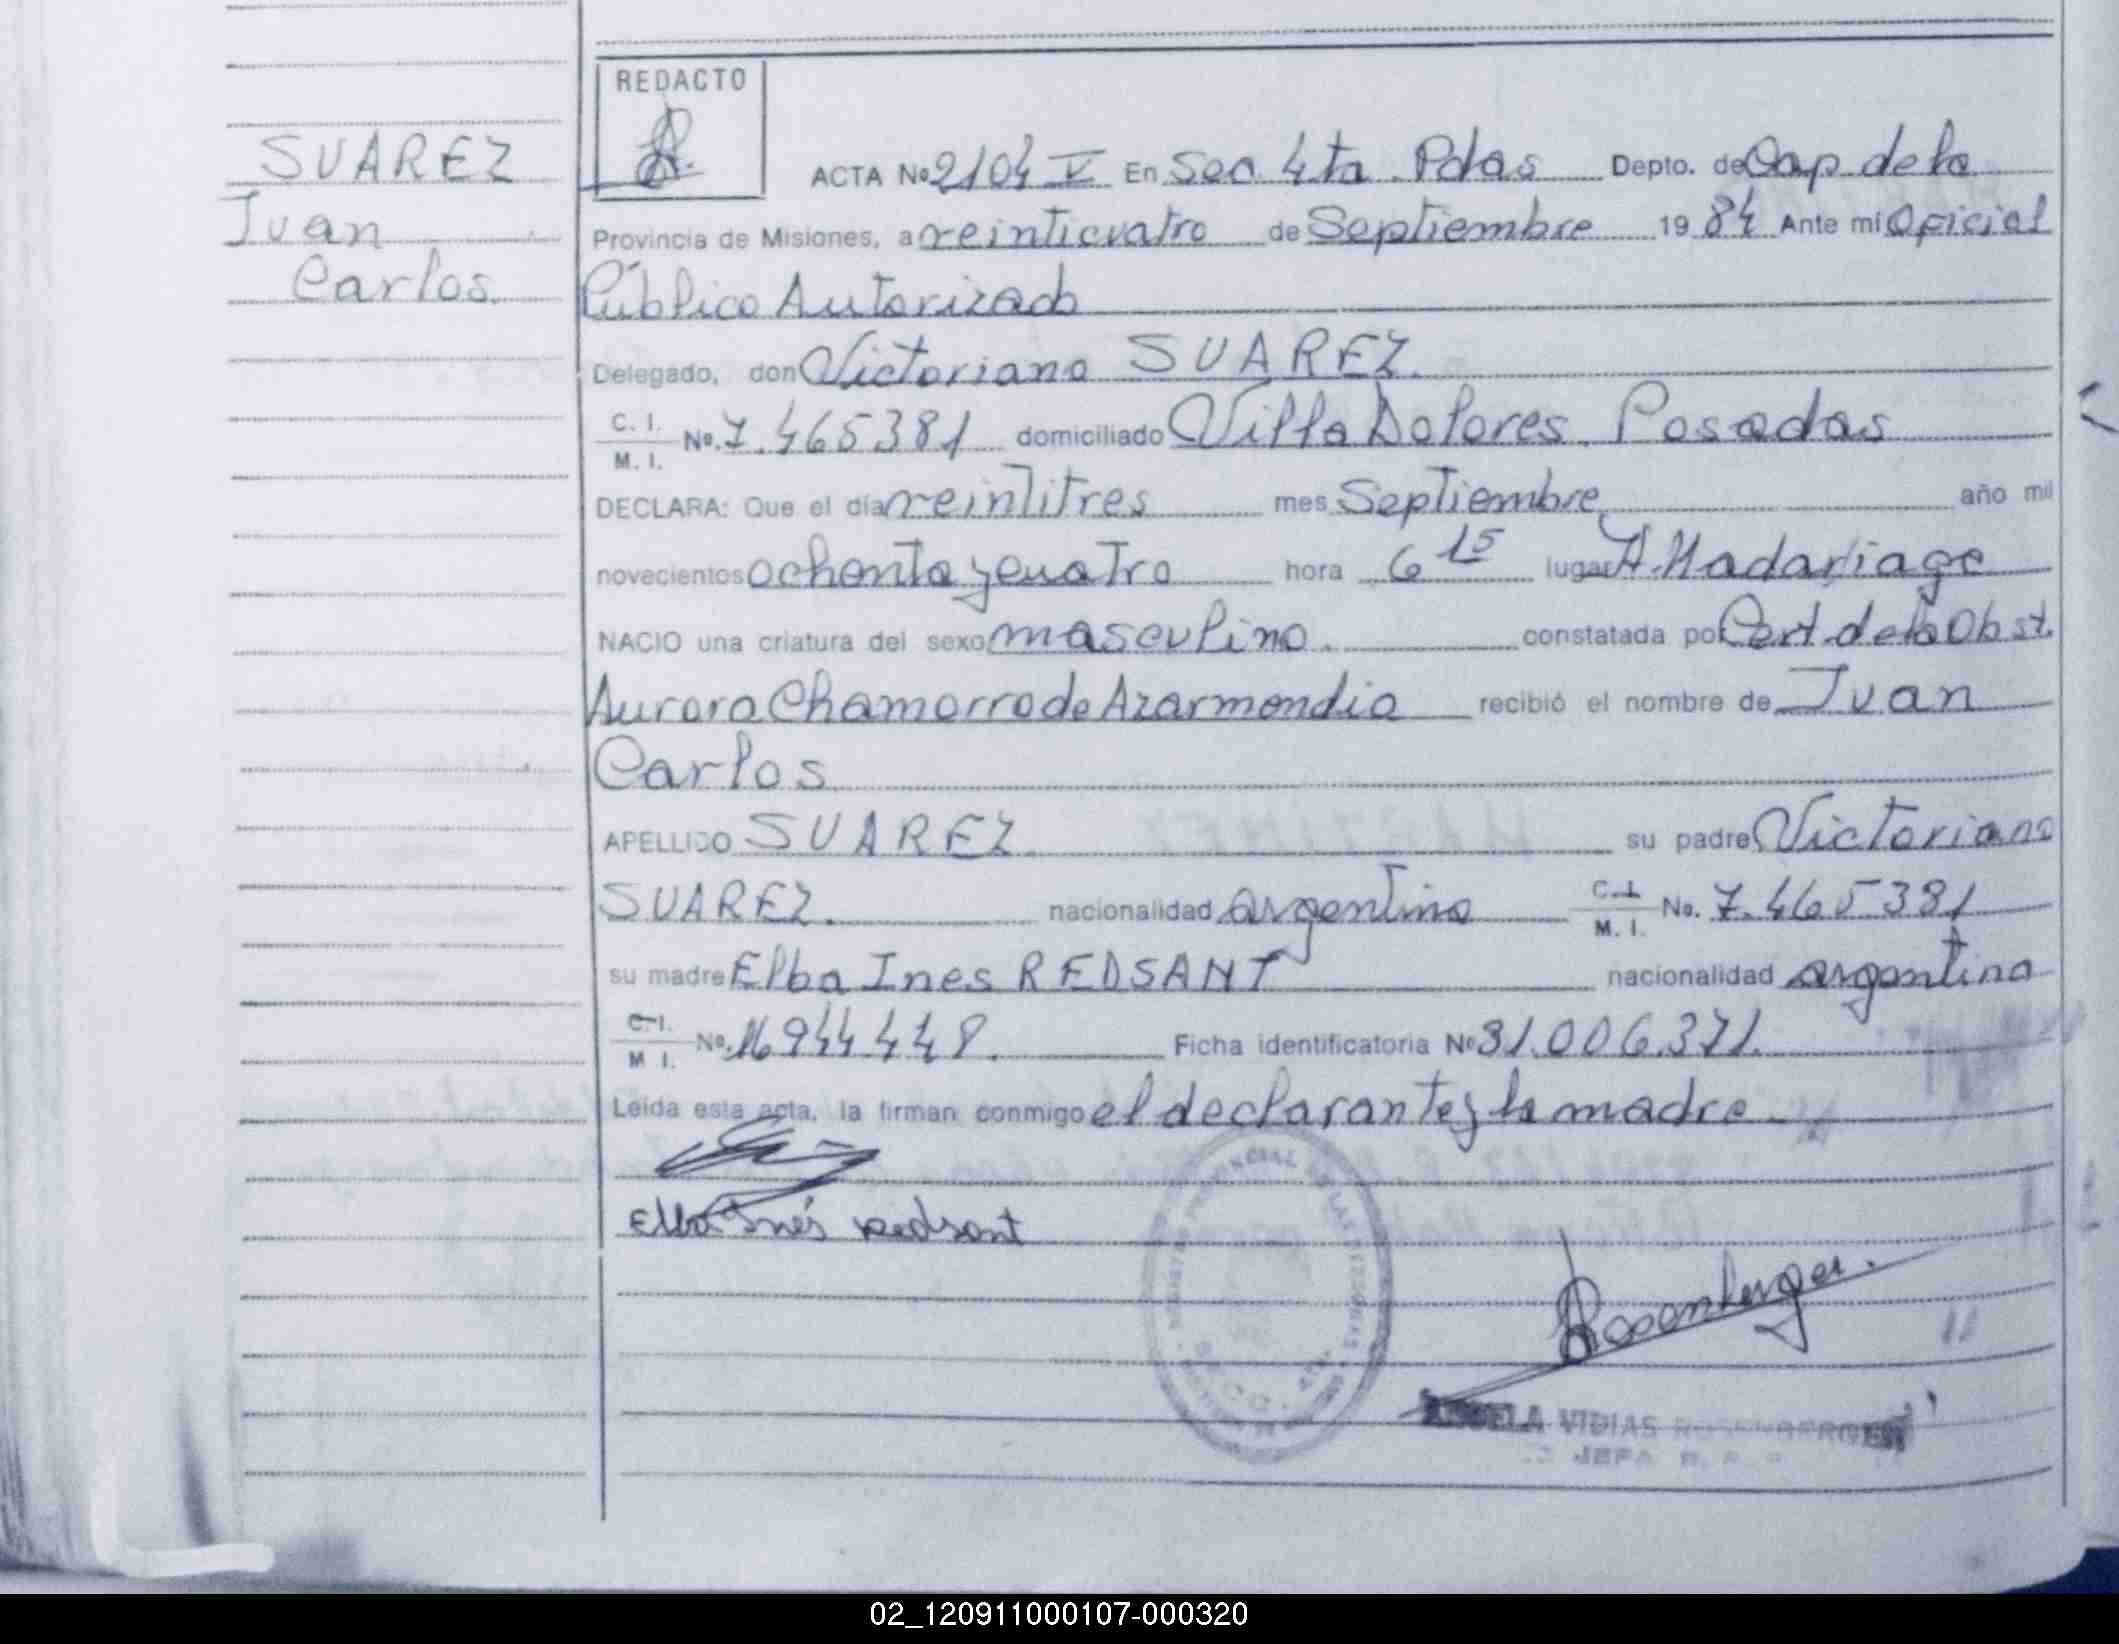 REDACTO
SUAREZ
Juan
Carlos.
ACTA Nº 2104 V En Sec. 4ta. Pdas Depto. de Cap de la
Provincia de Misiones, a veinticuatro de Septiembre 19 84 Ante mi Oficial
Público Autorizado
Delegado, don Victoriano SUAREZ.
C. I.
M. I. Nº. 7.465381 domiciliado Villa Dolores. Posadas
DECLARA: Que el día veintitres mes Septiembre año mil
novecientos ochenta y cuatro hora 6 15 lugar H. Madariaga
NACIO una criatura del sexo masculino. constatada por Cert. de la Obst.
Aurora Chamorro de Azarmendia recibió el nombre de Juan
Carlos
APELLIDO SUAREZ su padre Victoriano
SUAREZ. nacionalidad argentino C. I. M. I. No. 7.465381
su madre Elba Ines REDSANT nacionalidad argentina
C. I. M I. Nº. 16944448. Ficha identificatoria Nº 31.006.371.
Leída esta acta, la firman conmigo el declarante y la madre
Elba Inés Redsant
Rosenberger.
VIDIAS ROSENBERGER
JEFA
02_120911000107-000320